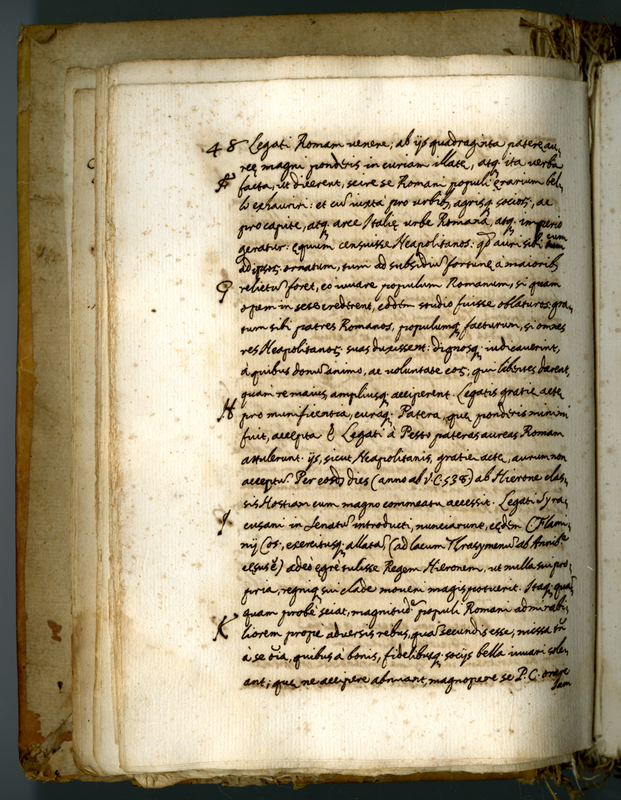 48 Legati Romam venere, ab ijs quadraginta pateræ au,
reę magni ponderis in curiam illatę, atq; ita verba
F facta, ut dicerent, scire se Romani populi ęrarium bel,
lo exhauriri: et cū iuxta pro urbib, agrisq; socior, ac
pro capite, atq; arce Italię urbe Romana, atq; imperio
geratur: ęquum censuisse Neapolitanos: qđ auri sibi cum
ad ipsor ornatum, tum ad subsidiū fortunę a maiorib,
G relictū foret, eo iuvare populum Romanum, si quam
opem in sese crederent, eodem studio fuisse oblaturos: gra,
tum sibi patres Romanos, populumq; facturum, si omnes
res Neapolitanor suas duxissent: dignosq; iudicaverint,
à quibus donū animo, ac voluntate eor, qui libentes darent,
quàm re maius, ampliusq; acciperent. Legatis gratię actę
H pro munificentia, curaq; Patera, quę ponderis minimi
fuit, accepta & Legati à Pesto pateras aureas Romam
attulerunt. ijs, sicut Neapolitanis, gratię actę, aurum non
acceptū. Per eosd dies (anno ab V.C. 538) ab Hierone clas,
sis Hostiam cum magno commeatu accessit. Legati Syra,
I cusani in Senatū introducti, nunciarunt, cędem C. Flami,
nij Cos, exercitusq; allatā (ad lacum Thrasymenū ab Annib.e
cęsus ē) adeò egrè tulisse Regem Hieronem, ut nulla sua pro,
pria, regniq; sui clade moveri magis potuerit. Itaq; quā,
quam probè sciat, magnitudē populi Romani admirabi,
K liorem propè adversis rebus, quā secundis esse, missa tn̄
à se oīa, quibus à bonis, fidelibusq; socijs bella iuvari sole,
ant; quę ne accipere abnuant, magnopere se P.C. orare
Iam